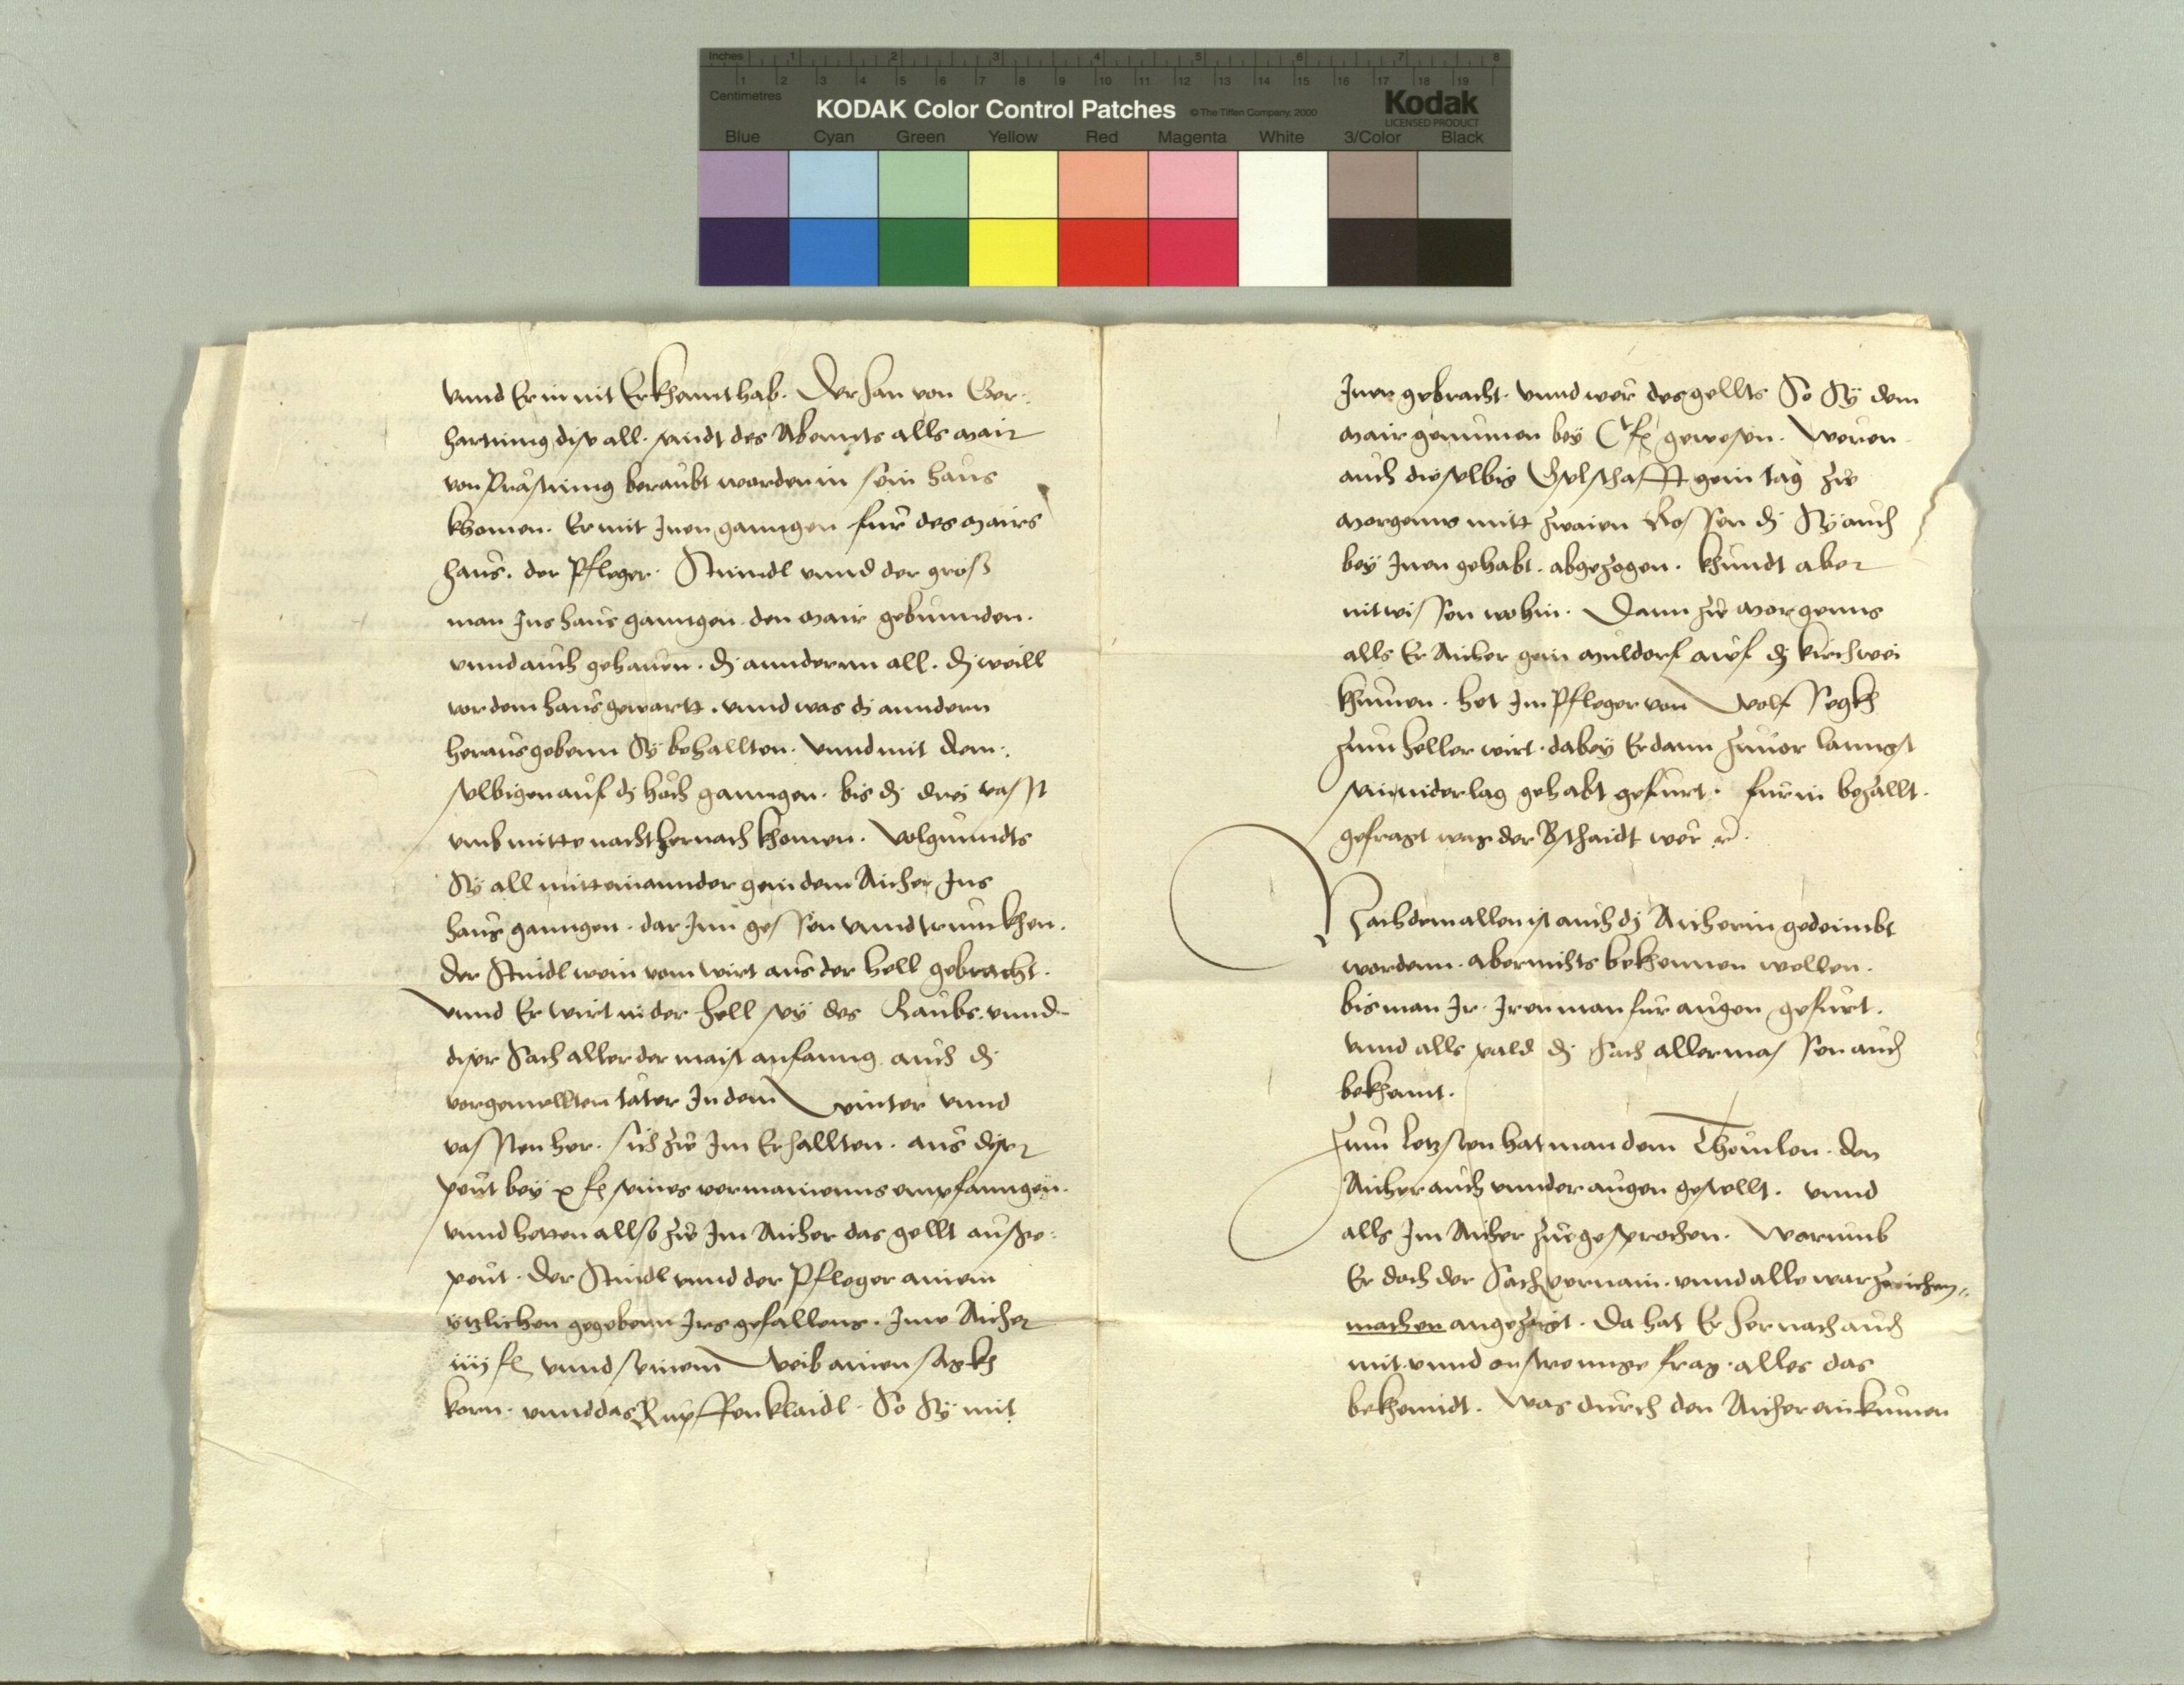 Inches 1 2 3 4 5 6 7 8
1 2 3 4 5 6 7 8 9 10 11 12 13 14 15 16 17 18 19
Centimetres
KODAK Color Control Patches © The Tiffen Company, 2000 Kodak
LICENSED PRODUCT
Blue Cyan Green Yellow Red Magenta White 3/Color Black
vnnd Er in nit Erkhennt hab. Der san von Ger-
harting dise all. sindt des Abennts alls Mair
von beraubt worden in sein haus
khomen. Er mit Inen ganngen fur des Mairs
haus. der Pfleger. Stindl vnnd der gros
man Ins haus ganngen. den Mair gebunnden.
vnnd auch gehauen. dj anndernn all. dj weill
vor dem haus gewartt. vnnd was dj anndern
heraus gebenn Sy behallten. vnnd mit dem
selbigen auf dj hoch ganngen. bis dj drei vasst
vmb mitte nacht hernach khomen. volgunndts
Sy all mitteinannder gein dem Aicher Ins
haus ganngen. dar Inn gessen vnnd trunkhen.
der Stindl wein vom wirt aus der hell gebracht.
vnnd Er wirt in der hell sey des Raubs. vnnd
diser Sach aller der maist anfanng. auch dj
vorgemellten täter In dem winter vnnd
vassten her. sich zw Im Erhallten. aus diser
peut bey x fl seines vermainenns empfanngen.
vnnd hetten allso zw Im Aicher das gellt ausge-
peut. der Stindl vnnd der Pfleger ainem
yetzlichen gegebenn Irs gefallens. Ime Aicher
iiij fl vnnd seinem weib ainen sagkh
korn. vnnd das Rupffen klaidl. So Sy mit
Inen gebracht. vnnd wer des gellts So Sy dem
Mair genumen bey fl gewesen. weren
auch dieselbig Gselschafft gein tag zw
Morgenns mitt zwaien Rossen dj Sy auch
bey Inen gehabt. abgezogen. khundt aber
nit wissen wohin. Dann zw Morgenns
alls Er Aicher gein Muldorf auf dj kirchwei
khumen. het Im Pfleger von Wolfsegkh
zum heller wirt. dabey Er dann zuuor lanngst
sein niderlag gehabt gefurt. fur in bezallt.
gefragt was der Bschaidt wer
Nach dem allen ist auch dj Aicherin gedeimbt
wordenn. aber nichts bekhennen wellen.
bis man Ir. Iren man fur augen gefurt.
vnnd alls pald dj Sach allermassen auch
bekhennt.
Zum letzsten hat man dem den
Aicher auch vnnder augen gestellt. vnnd
alls Im Aicher zuegesprochen. Warumb
Er doch der Sach vernain. vnnd alle warzaichen
machen angezaigt. Da hat Er hernach auch
mit. vnnd on strennge frag. alles das
bekhenndt. Was durch den Aicher einkumen